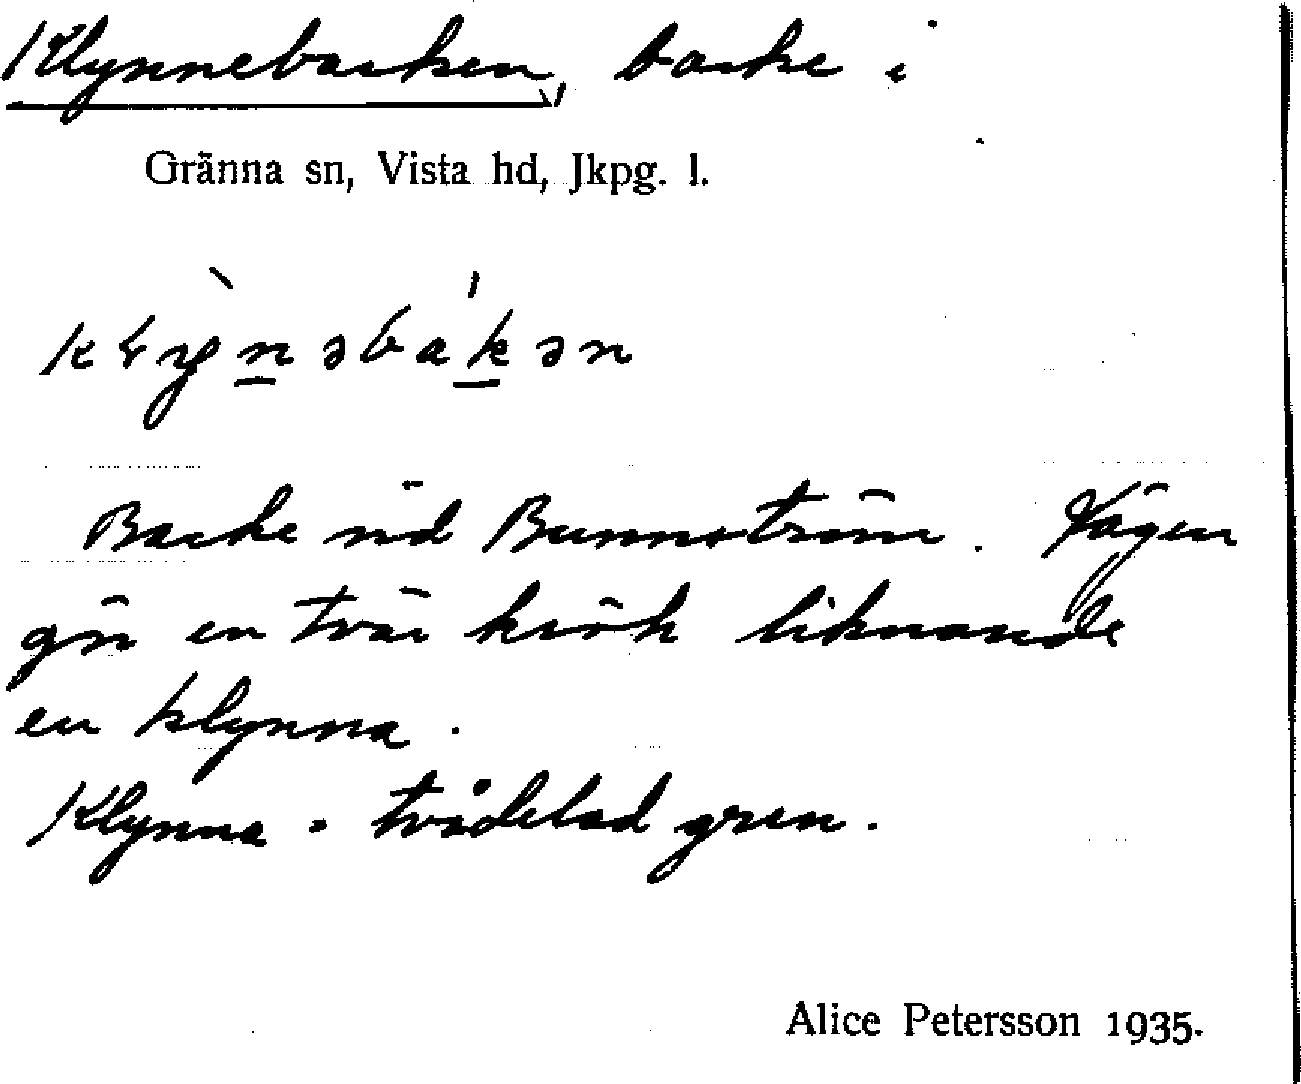 Klynnebacken, backe i
Gränna sn, Vista hd, Jkpg. l.
Backe vid Bunnström. Vägen
gör en tvär krök liknande
en klynna.
Klynna = tvådelad gren.
Alice Petersson 1935.